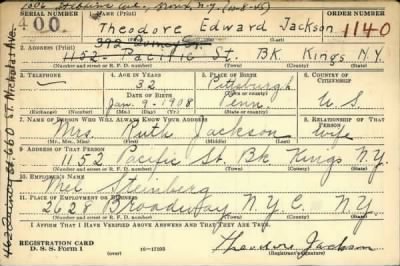 1006 Stebbins Ave., Bronx, N.Y. (10-8-45)
SERIAL NUMBER
1. NAME (Print)
ORDER NUMBER
400.
Theodore Edward Jackson
1140
2. ADDRESS (Print)
1152- Pacific St. BK. Kings N.Y.
(Number and street or R. F. D. number) (Town) (County) (State)
3. TELEPHONE
4. AGE IN YEARS
5. PLACE OF BIRTH
6. COUNTRY OF CITIZENSHIP
32
Pittsburgh
DATE OF BIRTH
Jan. 9-1908
Penn.
U. S.
(Exchange) (Number)
(Mo.) (Day) (Yr.)
(State or country)
7. NAME OF PERSON WHO WILL ALWAYS KNOW YOUR ADDRESS
8. RELATIONSHIP OF THAT PERSON
Mrs. Ruth Jackson
wife
(Mr., Mrs., Miss) (First) (Middle) (Last)
9. ADDRESS OF THAT PERSON
1152 Pacific St. Bk Kings N.Y.
(Number and street or R. F. D. number) (Town) (County) (State)
10. EMPLOYER'S NAME
Mel Steinberg
11. PLACE OF EMPLOYMENT OR BUSINESS
2628 Broadway N.Y.C. N.Y.
(Number and street or R. F. D. number) (Town) (County) (State)
I AFFIRM THAT I HAVE VERIFIED ABOVE ANSWERS AND THAT THEY ARE TRUE.
REGISTRATION CARD
D. S. S. Form 1
16-17105
Theodore Jackson
(Registrant's signature)
660 ST. Nicholas Ave.